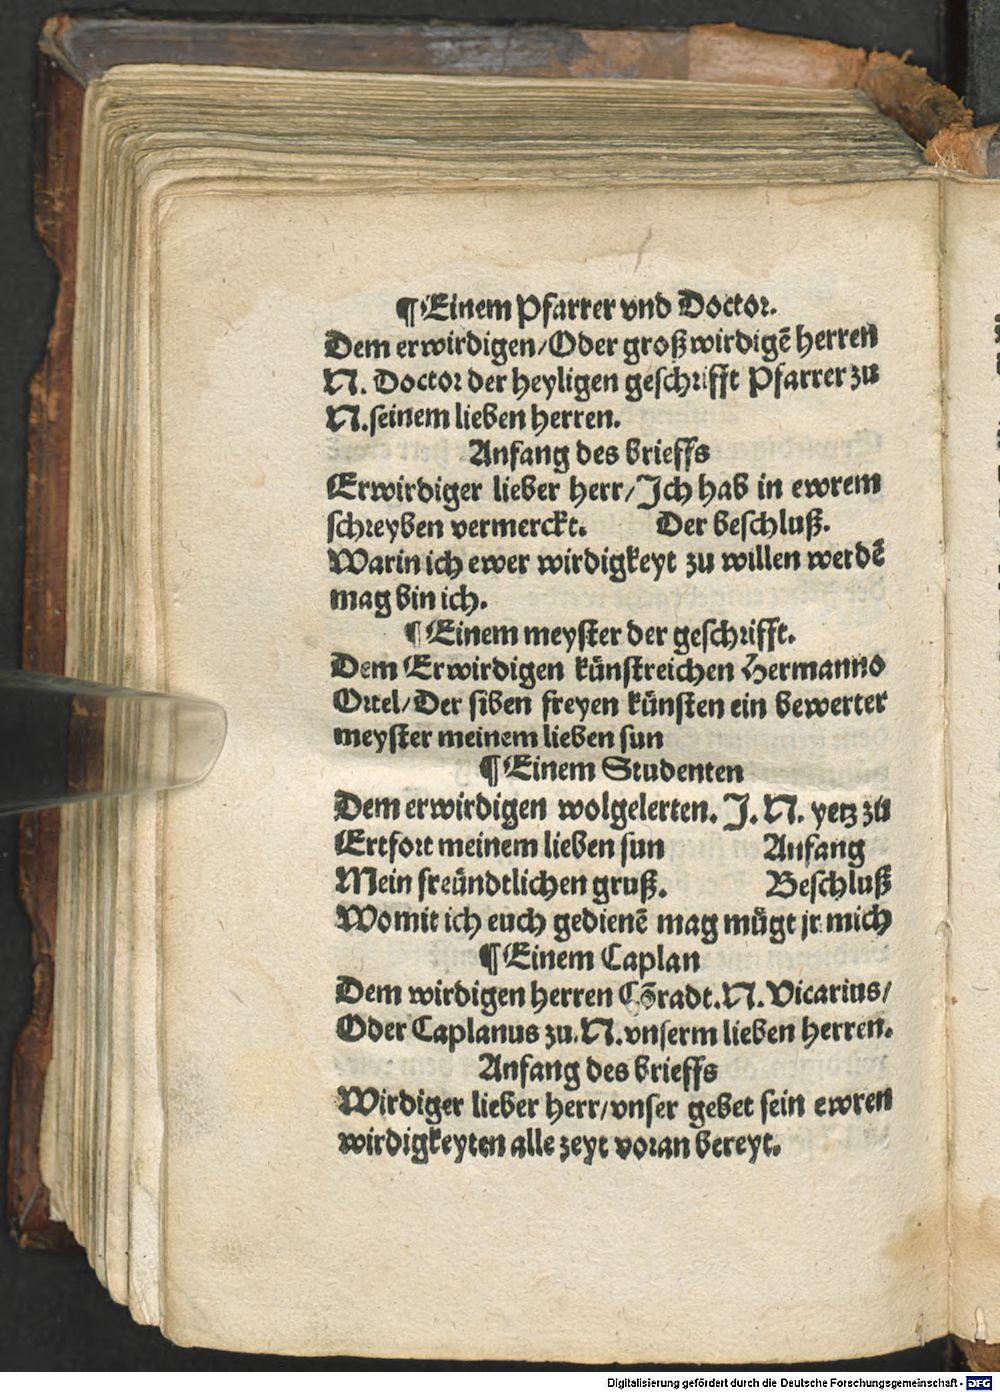 ¶Einem Pfarrer vnd Doctor.
Dem erwirdigen/Oder großwirdigē herren
N. Doctor der heyligen geschrifft Pfarrer zu
N.seinem lieben herren.
Anfang des brieffs
Erwirdiger lieber herr/Ich hab in ewrem
schreyben vermerckt. Der beschluß.
Warin ich ewer wirdigkeyt zu willen werdē
mag bin ich.
¶Einem meyster der geschrifft.
Dem Erwirdigen künstreichen Hermanno
Ortel/Der siben freyen künsten ein bewerter
meyster meinem lieben sun
¶Einem Studenten
Dem erwirdigen wolgelerten. J. N. yetz zů
Ertfort meinem lieben sun Anfang
Mein freündtlichen gruß. Beschluß
Womit ich euch gedienē mag mügt jr mich
¶Einem Caplan
Dem wirdigen herren Cōradt.N.Vicarius/
Oder Caplanus zu.N.vnserm lieben herren.
Anfang des brieffs
Wirdiger lieber herr/vnser gebet sein ewren
wirdigkeyten alle zeyt voran bereyt.
Digitalisierung gefördert durch die Deutsche Forschungsgemeinschaft - DFG